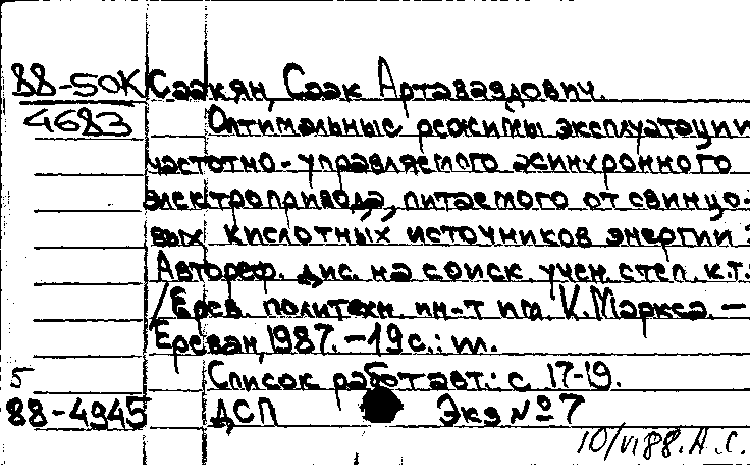 88-50К Саакян, Саак Артаваздович.
4683 Оптимальные режимы эксплуатации
частотно-управляемого асинхронного
электропривода, питаемого от свинцо-
вых кислотных источников энергии :
Автореф. дис. на соиск. учен. степ. к.т.
/Ерев. политехн. ин-т им. К. Маркса. –
Ереван, 1987. – 19 с.: ил.
5 Список работ авт.: с 17-19.
88-4945 ДСП Экз № 7
10/VI 88. А. С.